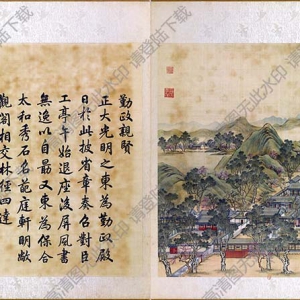 勤政親賢
正大光明之東為勤政殿
日於此披省章奏召對臣
工亭午始退座後屏風書
無逸以自勗又東為保合
太和秀石名葩庭軒明敞
觀閣相交林徑四達
请登陆下载